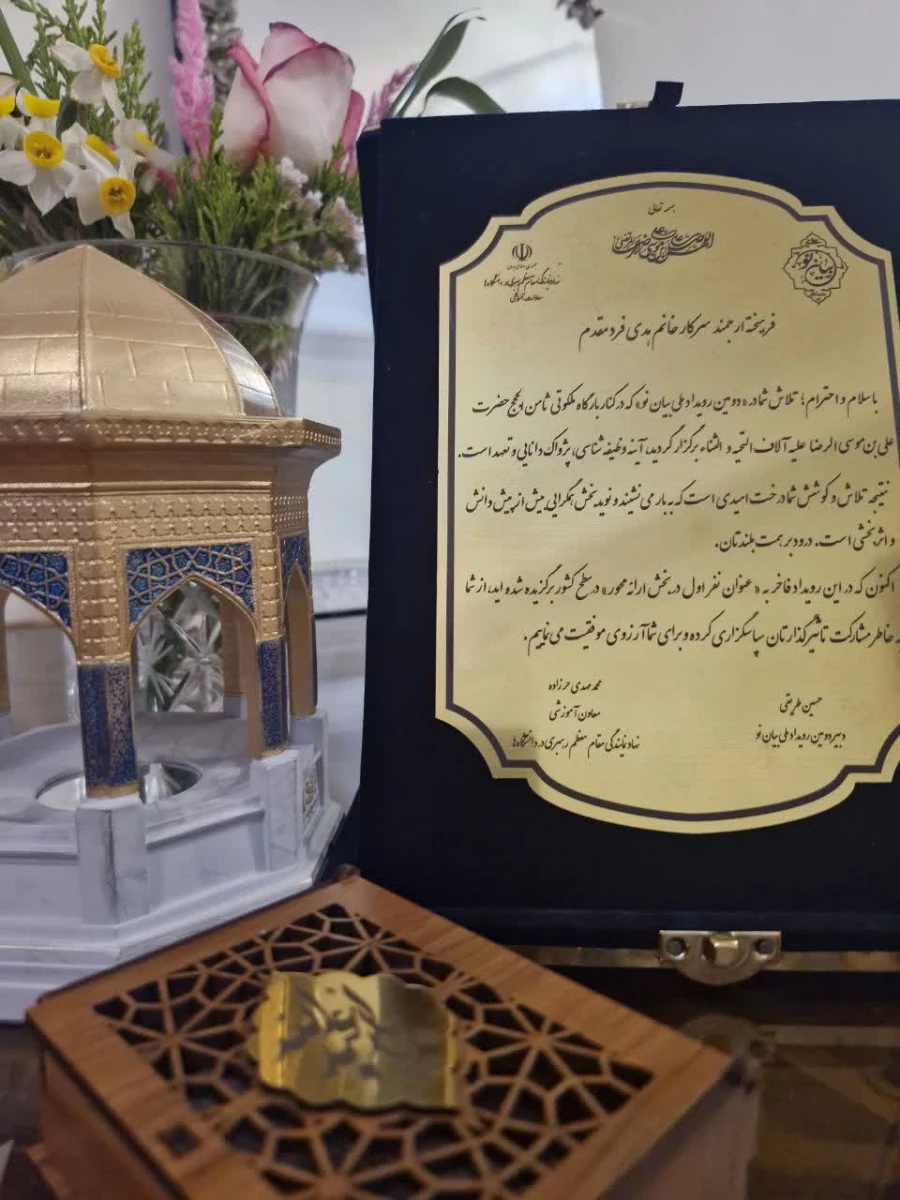 بسمه تعالی
بیان نو
نهاد نمایندگی مقام معظم رهبری در دانشگاه‌ها
فریخته ارجمند سرکار خانم هدی فرد مقدم
باسلام و احترام؛ تلاش شما در «دومین رویداد ملی بیان نو» که در کنار بارگاه ملکوتی ثامن الحجج حضرت
علی بن موسی الرضا علیه آلاف التحیه و الثناء برگزار گردید، آینه وظیفه شناسی، پژواک دانایی و تعهد است.
نتیجه تلاش و کوشش شما درخت امیدی است که به بار می نشیند و نویدبخش همگرایی بیش از پیش دانش
و اثربخشی است. درود بر همت بلندتان.
اکنون که در این رویداد فاخر به «عنوان نفر اول در بخش ارائه محور» در سطح کشور برگزیده شده اید، از شما
به خاطر مشارکت تاثیرگذارتان سپاسگزاری کرده و برای شما آرزوی موفقیت می نماییم.
حسین طریقی
دبیر دومین رویداد ملی بیان نو
محمد مهدی حرزاده
معاون آموزشی
نهاد نمایندگی مقام معظم رهبری در دانشگاه‌ها